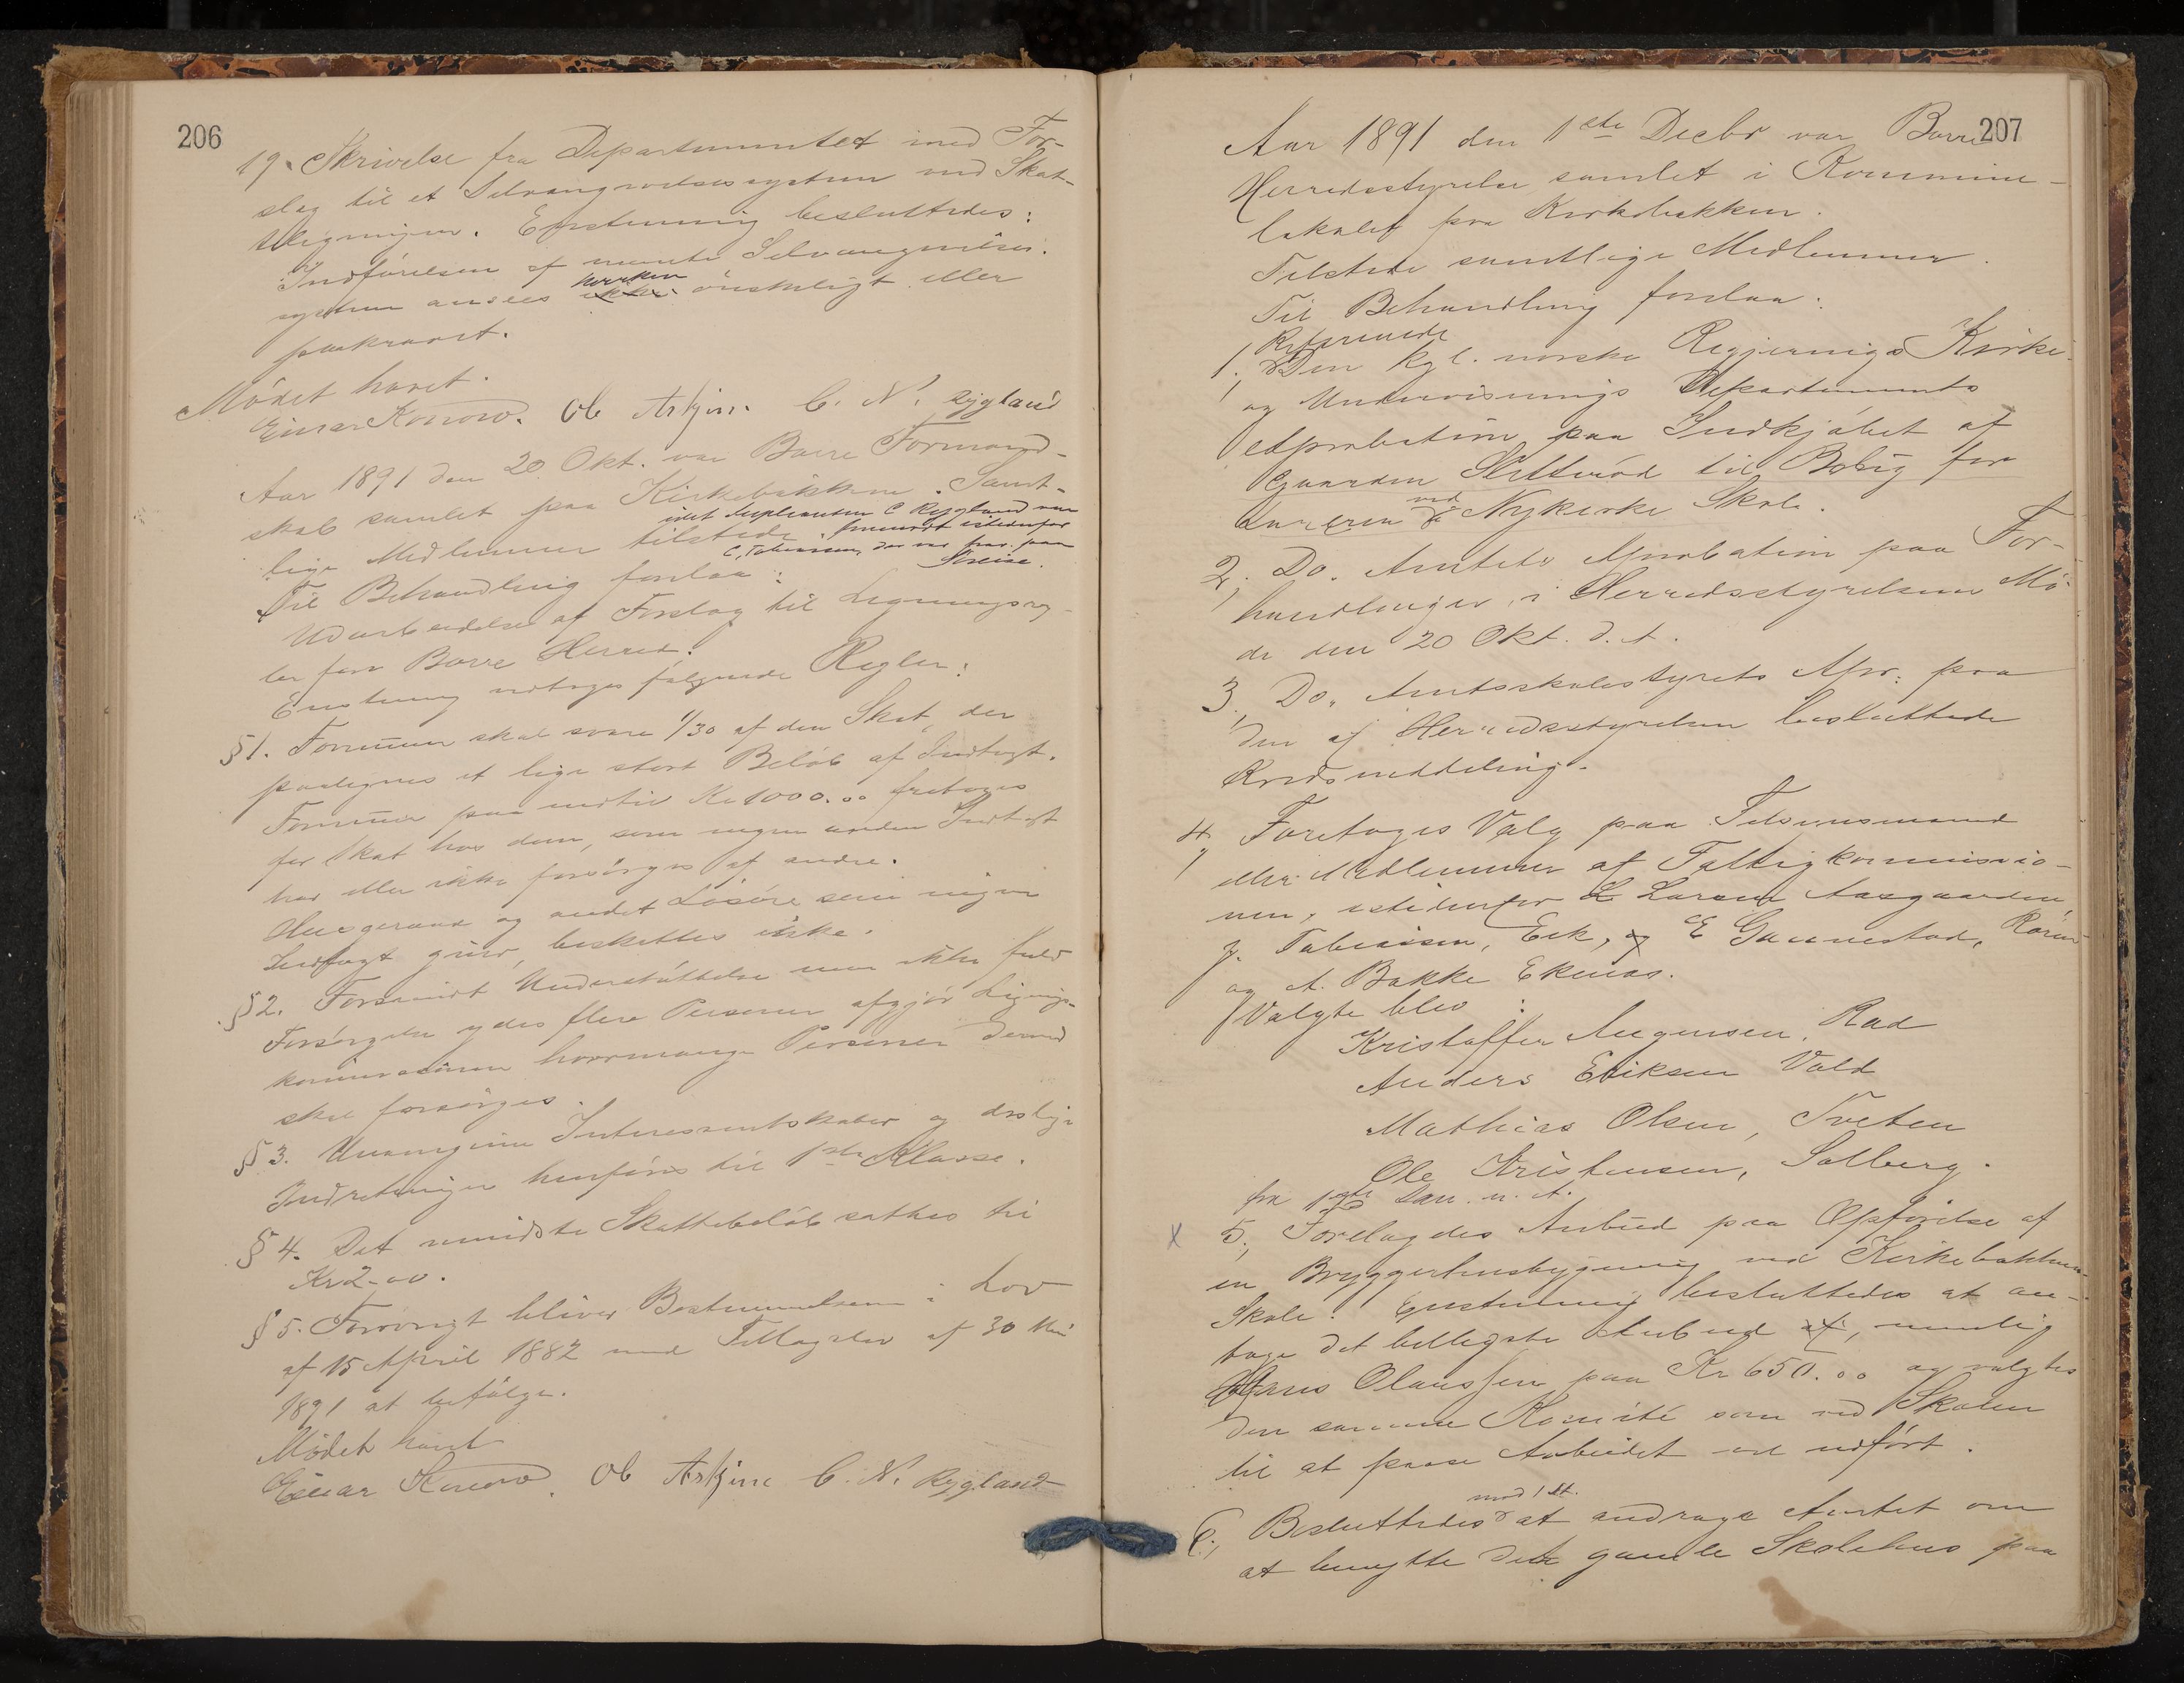 206
19. Skrivelse fra Departementet med For-
slag til et Selvangivelsessystem ved Skat-
teligningen. Enstemmig besluttedes:
Indførelsen af nævnte Selvangivelses-
system ansees hverken ikke ønskeligt eller
paakrævet.
Mödet hævet.
Einar Konow. Ob Askjem. C. N. Rygland
Aar 1891 den 20 Okt. var Borre Formand-
skab samlet paa Kirkebakken. Samt-
lige Medlemmer tilstede, idet Supleanten C Rygland var
fremmødt istedenfor
C. Tobiassen, der var frav. paa
Reise.
Til Behandling forelaa:
Udarbeidelse af Forslag til Ligningsreg-
ler for Borre Herred.
Enstemmig vedtoges følgende Regler:
§ 1. Formuen skal svare 1/30 af den Skat, der
paalignes et lige stort Beløb af Indtægt.
Formue paa indtil Kr 1000.00 fritages
for Skat hos dem, som ingen anden Indtægt
har eller ikke forsörges af andre.
Husgeraad og andet Lösöre som ingen
Indtægt giver, beskattes ikke.
§ 2. Forsaavidt Understöttelse men ikke fuld
Forsörgelse ydes flere Personer afgjör Lignings-
kommissionen hvormange Personer dermed
skal forsörges.
§ 3. Unavngivne Interessentskaber og deslige
Indretninger henføres til 1ste Klasse.
§ 4. Det mindste Skattebelöb sættes til
Kr 2.00.
§ 5. Forövrigt bliver Bestemmelserne i Lov
af 15 April 1882 med Tillægslov af 30 Mai
1891 at befølge.
Mödet hævet
Einar Konow. Ob Askjem C. N. Rygland
207
Aar 1891 den 1ste Decbr var Borre
Herredsstyrelse samlet i Kommune-
lokalet paa Kirkebakken.
Tilstede samtlige Medlemmer.
Til Behandling forelaa:
Refereredes
1. Den kgl. norske Regjerings Kirke-
og Undervisnings Departements
Approbation paa Indkjöbet af
Gaarden Slitteröd til Bolig for
Læreren ved Nykirke Skole.
2, Do. Amtets Aprobation paa For-
handlinger i Herredsstyrelsens Mö-
de den 20 Okt. d. A.
3, Do. Amtsskolestyrets Apr. paa
den af Herredsstyrelsen besluttede
Kredsinddeling.
4, Foretoges Valg paa Tilsynsmænd
eller Medlemmer af Fattigkommissio-
nen, istedenfor L Larsen Aasgaarden,
J. Tobiassen, Eek, og E Gannestad, Rören
og A. Bakke Ekenæs.
Valgte blev:
Kristoffer Augensen, Rød
Anders Eriksen Vold
Mathias Olsen, Tveten
Ole Kristensen, Solberg.
fra 1ste Jan. n. A.
x 5, Forelagdes Anbud paa Opförelse af
en Bryggerhusbygning ved Kirkebakken
Skole. Enstemmig besluttedes at an-
tage det billigste Anbud af, nemlig
Hans Olaussen paa Kr 650.00 og valgtes
den samme Komité som ved Skolen
til at paase Arbeidet vel udfört.
6, Besluttedes mod 1 St. at andrage Amtet om
at benytte det gamle Skolehus paa